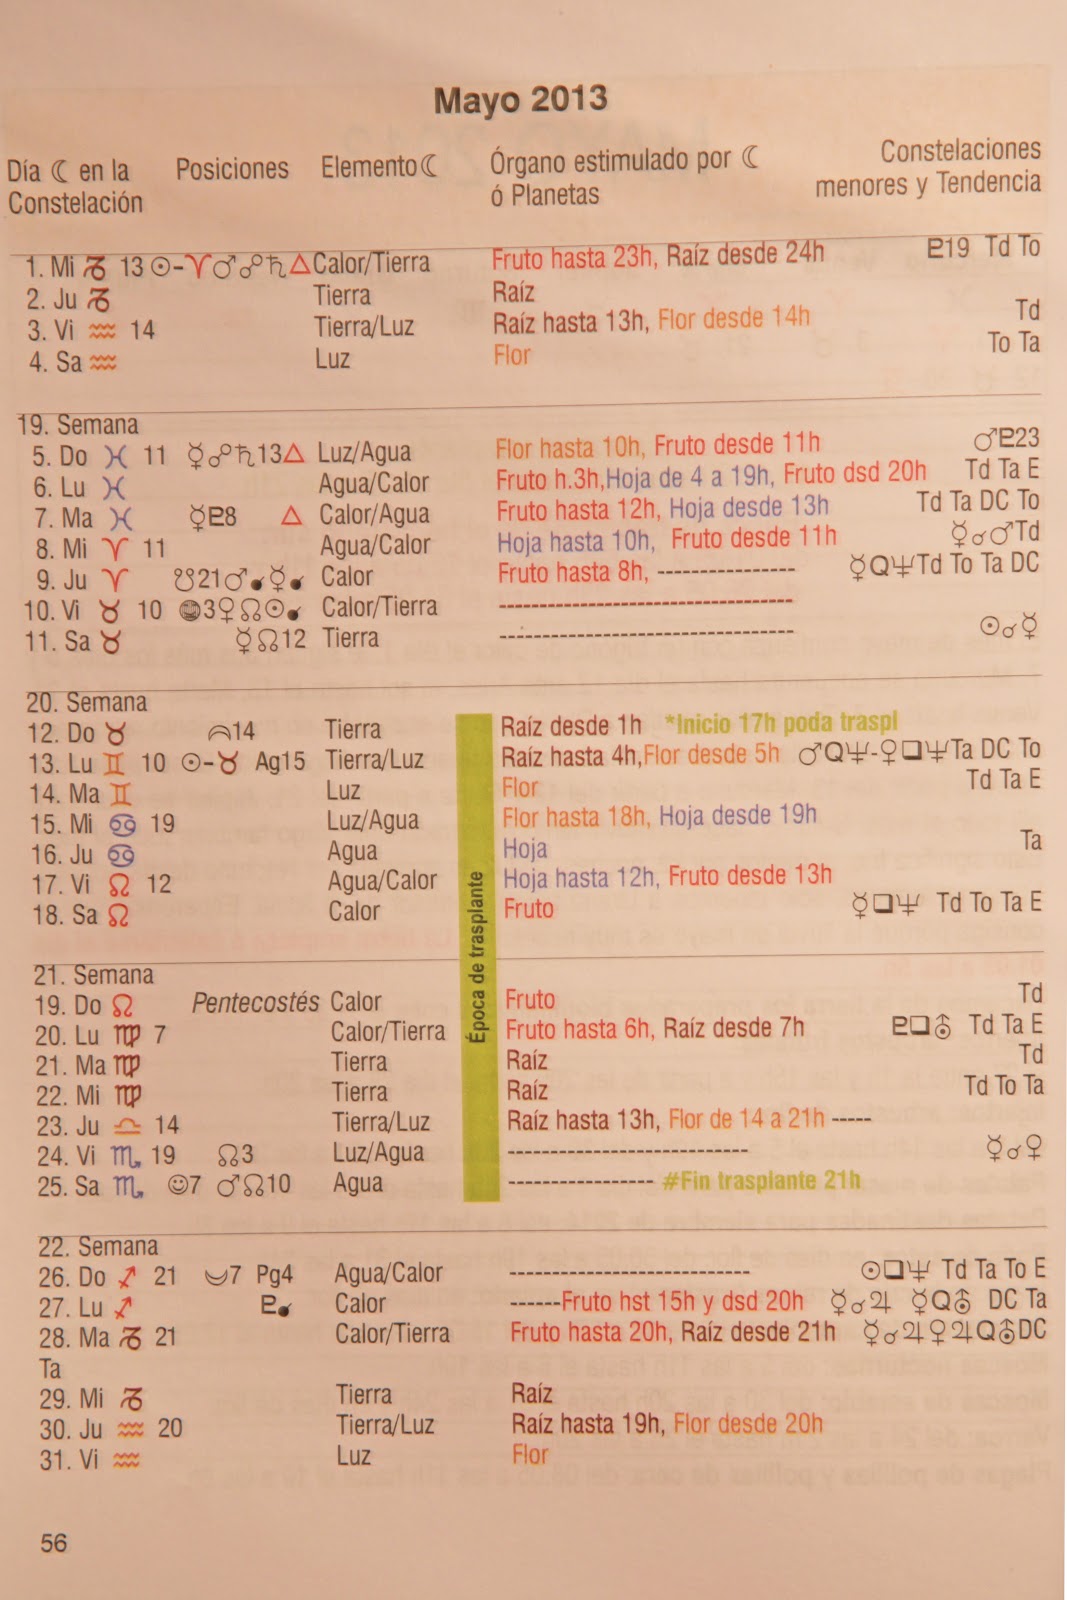 Mayo 2013
Día ☾ en la Constelación Posiciones Elemento ☾ Órgano estimulado por ☾ ó Planetas Constelaciones menores y Tendencia
1. Mi ♑ 13 ☉-♈♂☍♄ △ Calor/Tierra Fruto hasta 23h, Raíz desde 24h ♇19 Td To
2. Ju ♑ Tierra Raíz
3. Vi ♒ 14 Tierra/Luz Raíz hasta 13h, Flor desde 14h Td
4. Sa ♒ Luz Flor To Ta
19. Semana
5. Do ♓ 11 ☿☍♄13△ Luz/Agua Flor hasta 10h, Fruto desde 11h ♂♇23
6. Lu ♓ Agua/Calor Fruto h.3h,Hoja de 4 a 19h, Fruto dsd 20h Td Ta E
7. Ma ♓ ☿♇8 △ Calor/Agua Fruto hasta 12h, Hoja desde 13h Td Ta DC To
8. Mi ♈ 11 Agua/Calor Hoja hasta 10h, Fruto desde 11h ☿☌♂Td
9. Ju ♈ ☋21♂☿ Calor Fruto hasta 8h, --------------- ☿Q♆Td To Ta DC
10. Vi ♉ 10 3♀☊☉ Calor/Tierra --------------------------------
11. Sa ♉ ☿☊12 Tierra -------------------------------- ☉☌☿
20. Semana
12. Do ♉ 14 Tierra Raíz desde 1h *Inicio 17h poda traspl
13. Lu ♊ 10 ☉-♉ Ag15 Tierra/Luz Raíz hasta 4h,Flor desde 5h ♂Q♆-♀❑♆Ta DC To
14. Ma ♊ Luz Flor Td Ta E
15. Mi ♋ 19 Luz/Agua Flor hasta 18h, Hoja desde 19h
16. Ju ♋ Agua Hoja Ta
17. Vi ♌ 12 Agua/Calor Hoja hasta 12h, Fruto desde 13h
18. Sa ♌ Calor Fruto ☿❑♆ Td To Ta E
Época de trasplante
21. Semana
19. Do ♌ Pentecostés Calor Fruto Td
20. Lu ♍ 7 Calor/Tierra Fruto hasta 6h, Raíz desde 7h ♇❑⛢ Td Ta E
21. Ma ♍ Tierra Raíz Td
22. Mi ♍ Tierra Raíz Td To Ta
23. Ju ♎ 14 Tierra/Luz Raíz hasta 13h, Flor de 14 a 21h -----
24. Vi ♏ 19 ☊3 Luz/Agua -------------------------- ☿☌♀
25. Sa ♏ ☺7 ♂☊10 Agua ---------------- #Fin trasplante 21h
22. Semana
26. Do ♐ 21 7 Pg4 Agua/Calor -------------------------- ☉❑♆ Td Ta To E
27. Lu ♐ ♇ Calor ------Fruto hst 15h y dsd 20h ☿☌♃ ☿Q⛢ DC Ta
28. Ma ♑ 21 Calor/Tierra Fruto hasta 20h, Raíz desde 21h ☿☌♃♀♃Q⛢DC
Ta
29. Mi ♑ Tierra Raíz
30. Ju ♒ 20 Tierra/Luz Raíz hasta 19h, Flor desde 20h
31. Vi ♒ Luz Flor
56